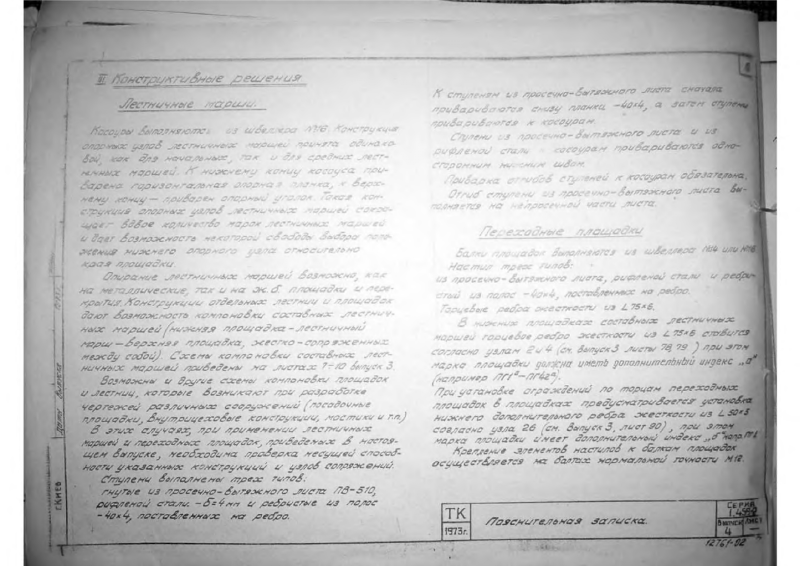 III. Конструктивные решения.
Лестничные марши.
Косоуры выполняются из швеллера №16. Конструкция
опорных узлов лестничных маршей принята одинако-
вой, как для начальных, так и для средних лест-
ничных маршей. К нижнему концу косоура при-
варена горизонтальная опорная планка, к верх-
нему концу - приварен опорный уголок. Такая кон-
струкция опорных узлов лестничных маршей сокра-
щает вдвое количество марок лестничных маршей
и дает возможность некоторой свободы выбора поло-
жения нижнего опорного узла относительно
края площадки.
Опирание лестничных маршей возможно, как
на металлические, так и на ж.б. площадки и пере-
крытия. Конструкции отдельных лестниц и площадок
дают возможность компоновки составных лестнич-
ных маршей (нижняя площадка-лестничный
марш-верхняя площадка, жестко-сопряженных
между собой). Схемы компоновки составных лест-
ничных маршей приведены на листах 7-10 выпуск 3.
Возможны и другие схемы компоновки площадок
и лестниц, которые возникают при разработке
чертежей различных сооружений (посадочные
площадки, внутрицеховые конструкции, мостики и т.п.)
В этих случаях, при применении лестничных
маршей и переходных площадок, приведенных в настоя-
щем выпуске, необходима проверка несущей способ-
ности указанных конструкций и узлов сопряжений.
Ступени выполнены трех типов:
гнутые из просечно-вытяжного листа ПВ-510,
рифленой стали -δ=4мм и ребристые из полос
-40×4, поставленных на ребро.
К ступеням из просечно-вытяжного листа сначала
привариваются снизу планки -40×4, а затем ступени
привариваются к косоурам.
Ступени из просечно-вытяжного листа и из
рифленой стали к косоурам привариваются одно-
сторонним нижним швом.
Приварка отгибов ступеней к косоурам обязательна.
Отгиб ступени из просечно-вытяжного листа вы-
полняется на непросечной части листа.
Переходные площадки
Балки площадок выполняются из швеллера
Настил трех типов:
из просечно-вытяжного листа, рифленой стали и ребри-
стый из полос -40×4, поставленных на ребро.
Торцевые ребра жесткости из L75×6.
В нижних площадках составных лестничных
маршей торцевое ребро жесткости из L75×6 ставится
согласно узлам 2 и 4 (см. выпуск 3 листы 78,79) при этом
марка площадки должна иметь дополнительный индекс „а"
При установке ограждений по торцам переходных
площадок в площадках предусматривается установка
нижнего дополнительного ребра жесткости из L50×5
согласно узла 26 (см. выпуск 3, лист 90), при этом
марка площадки имеет дополнительный индекс
Крепление элементов настилов к балкам площадок
осуществляется на болтах нормальной точности М12.
ТК
1973г.
Пояснительная записка.
Серия
Выпуск
4
Лист
12761-02
г. Киев